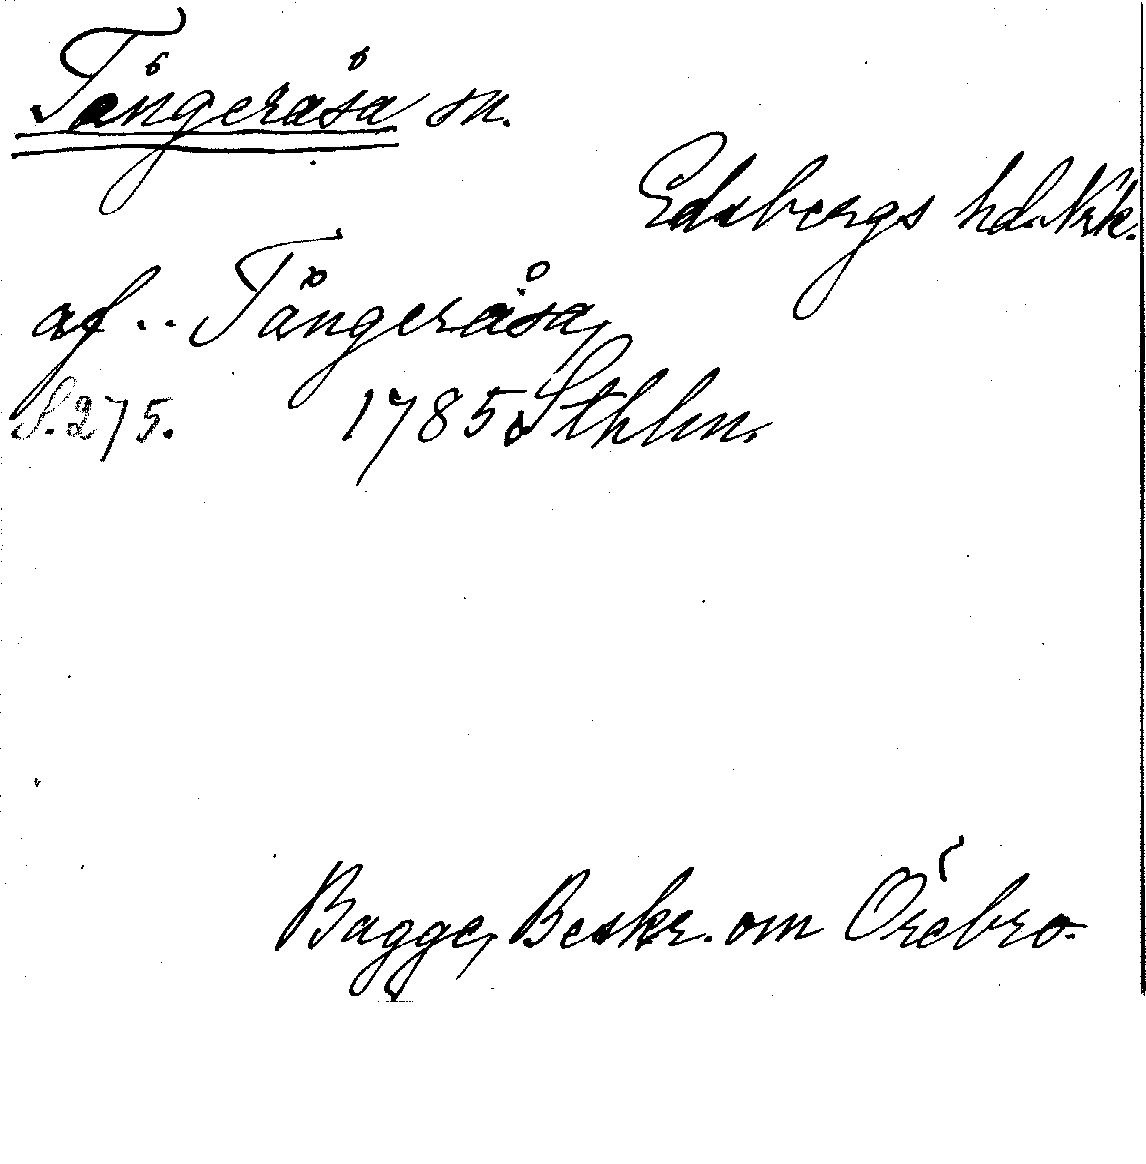 Tångeråsa sn.
Edsbergs hd. Nrk.
af .. Tångeråsa,
S. 275. 1785. Sthlm.
Bagge, Beskr. om Örebro.